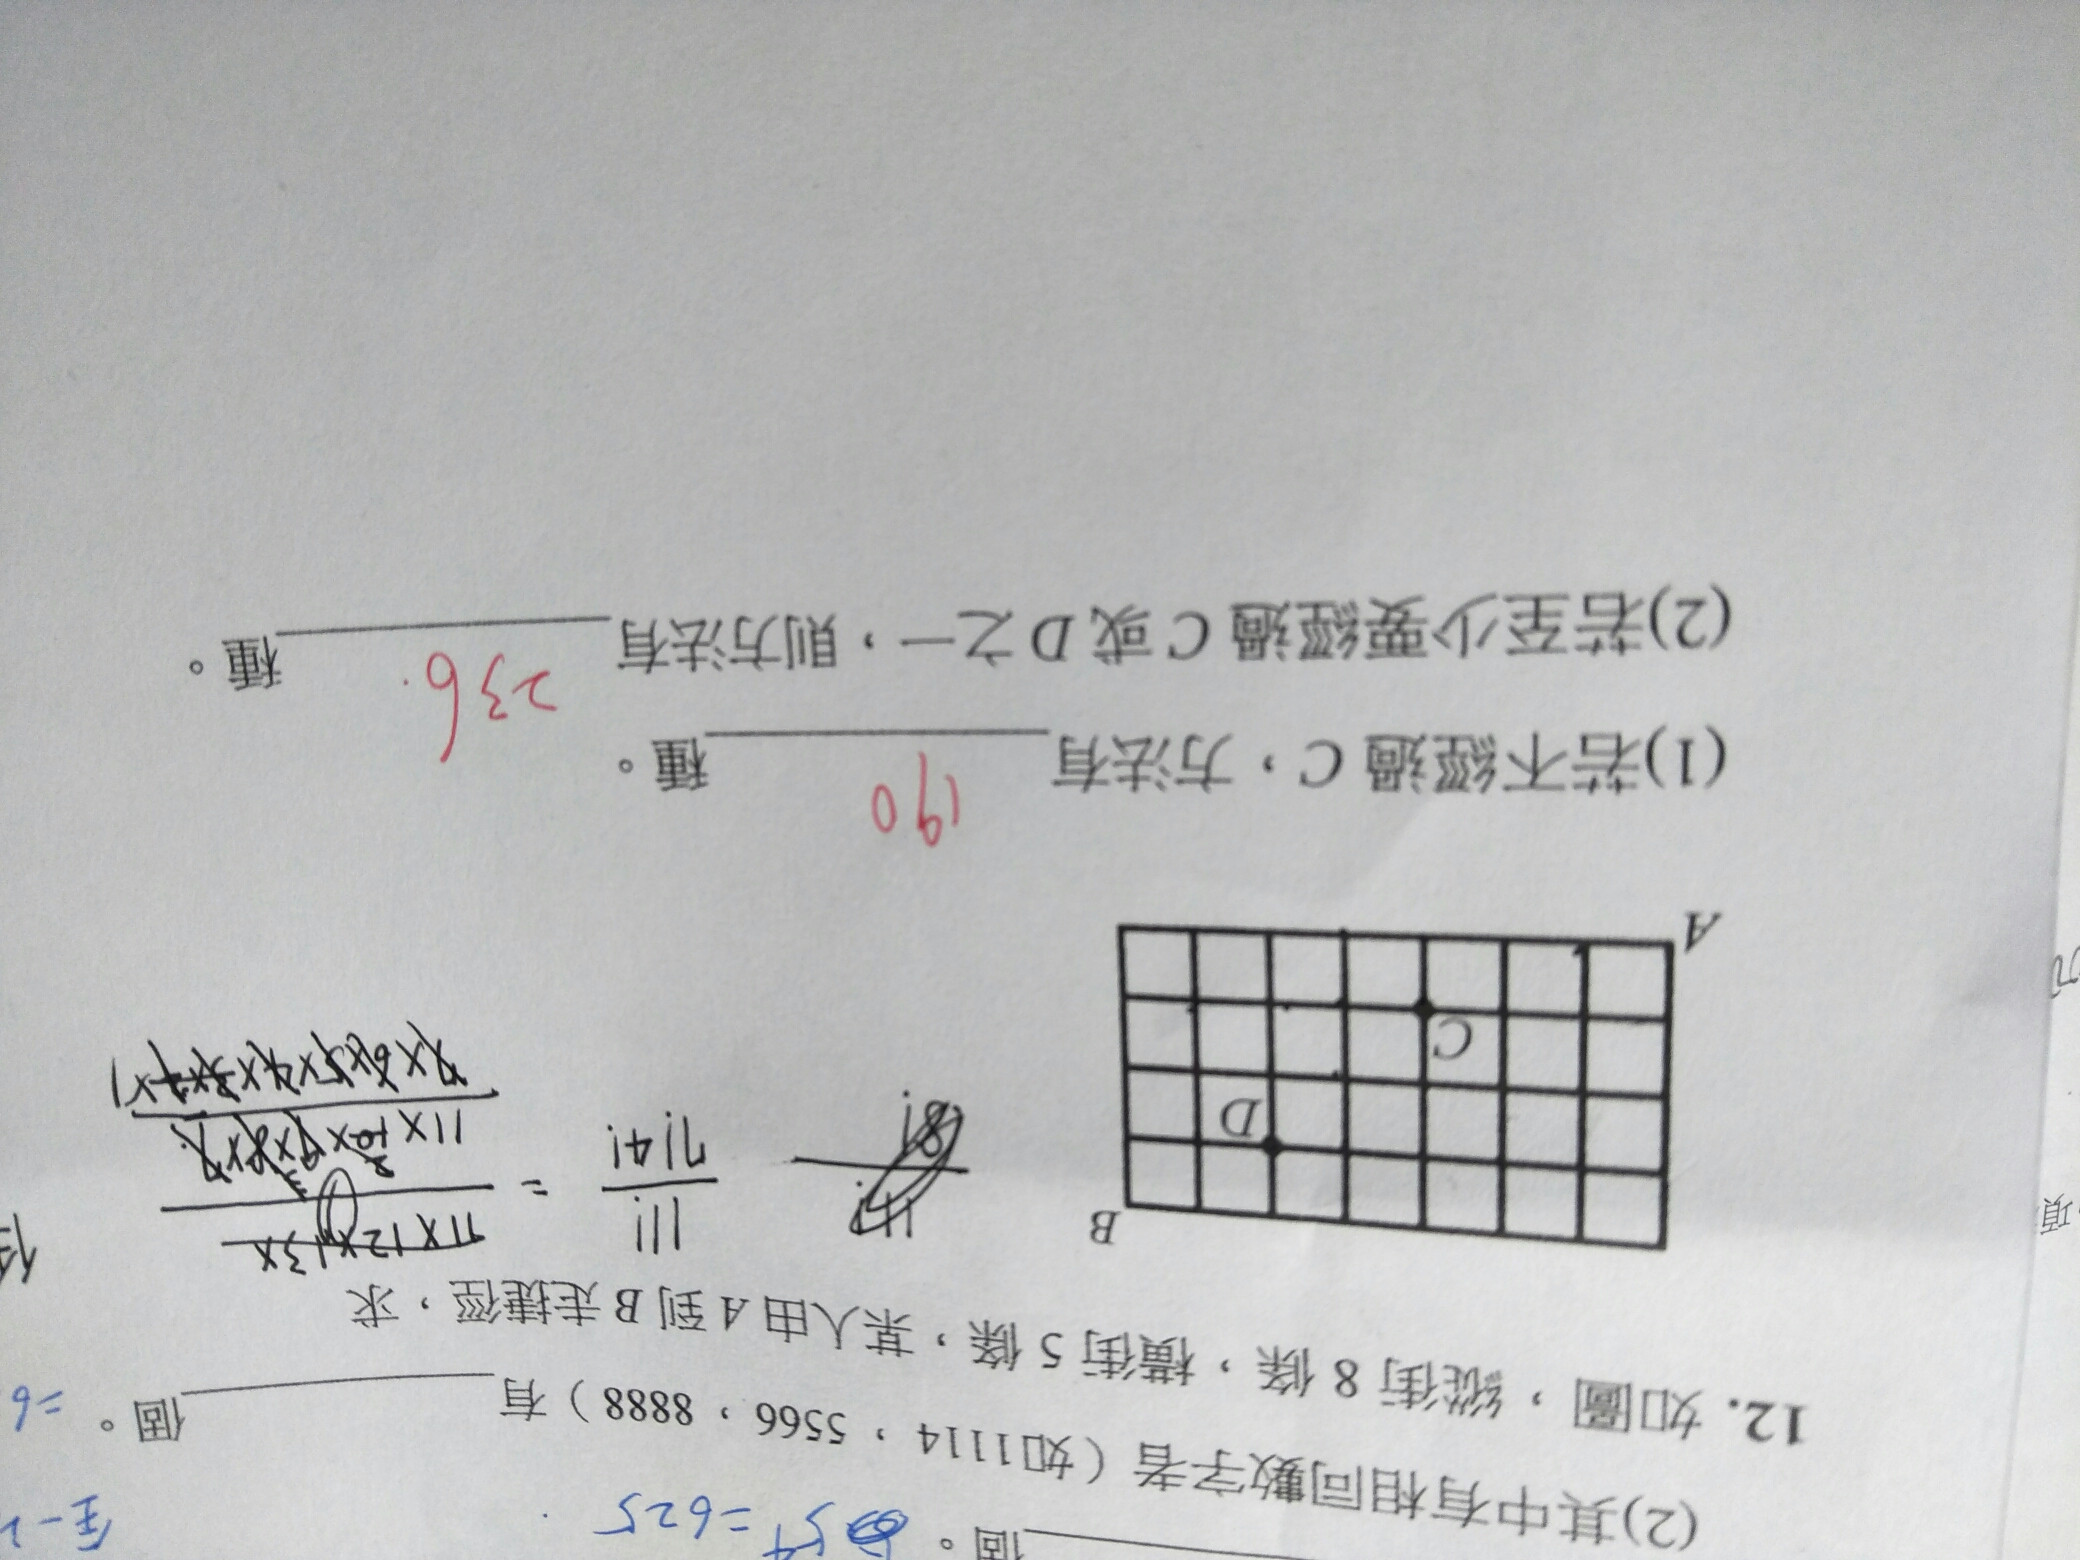 (2)其中有相同數字者（如1114，5566，8888）有 個。
個。 5⁴ =625
=6
12. 如圖，縱街 8 條，橫街 5 條，某人由 A 到 B 走捷徑，求
B
D
C
A
11!
8!
11!
7!4!
=
11×12×13×
11×10×9×8×7
7×6×5×4×3×2×1
2
3
(1)若不經過 C，方法有 190 種。
(2)若至少要經過 C 或 D 之一，則方法有 236 種。
項